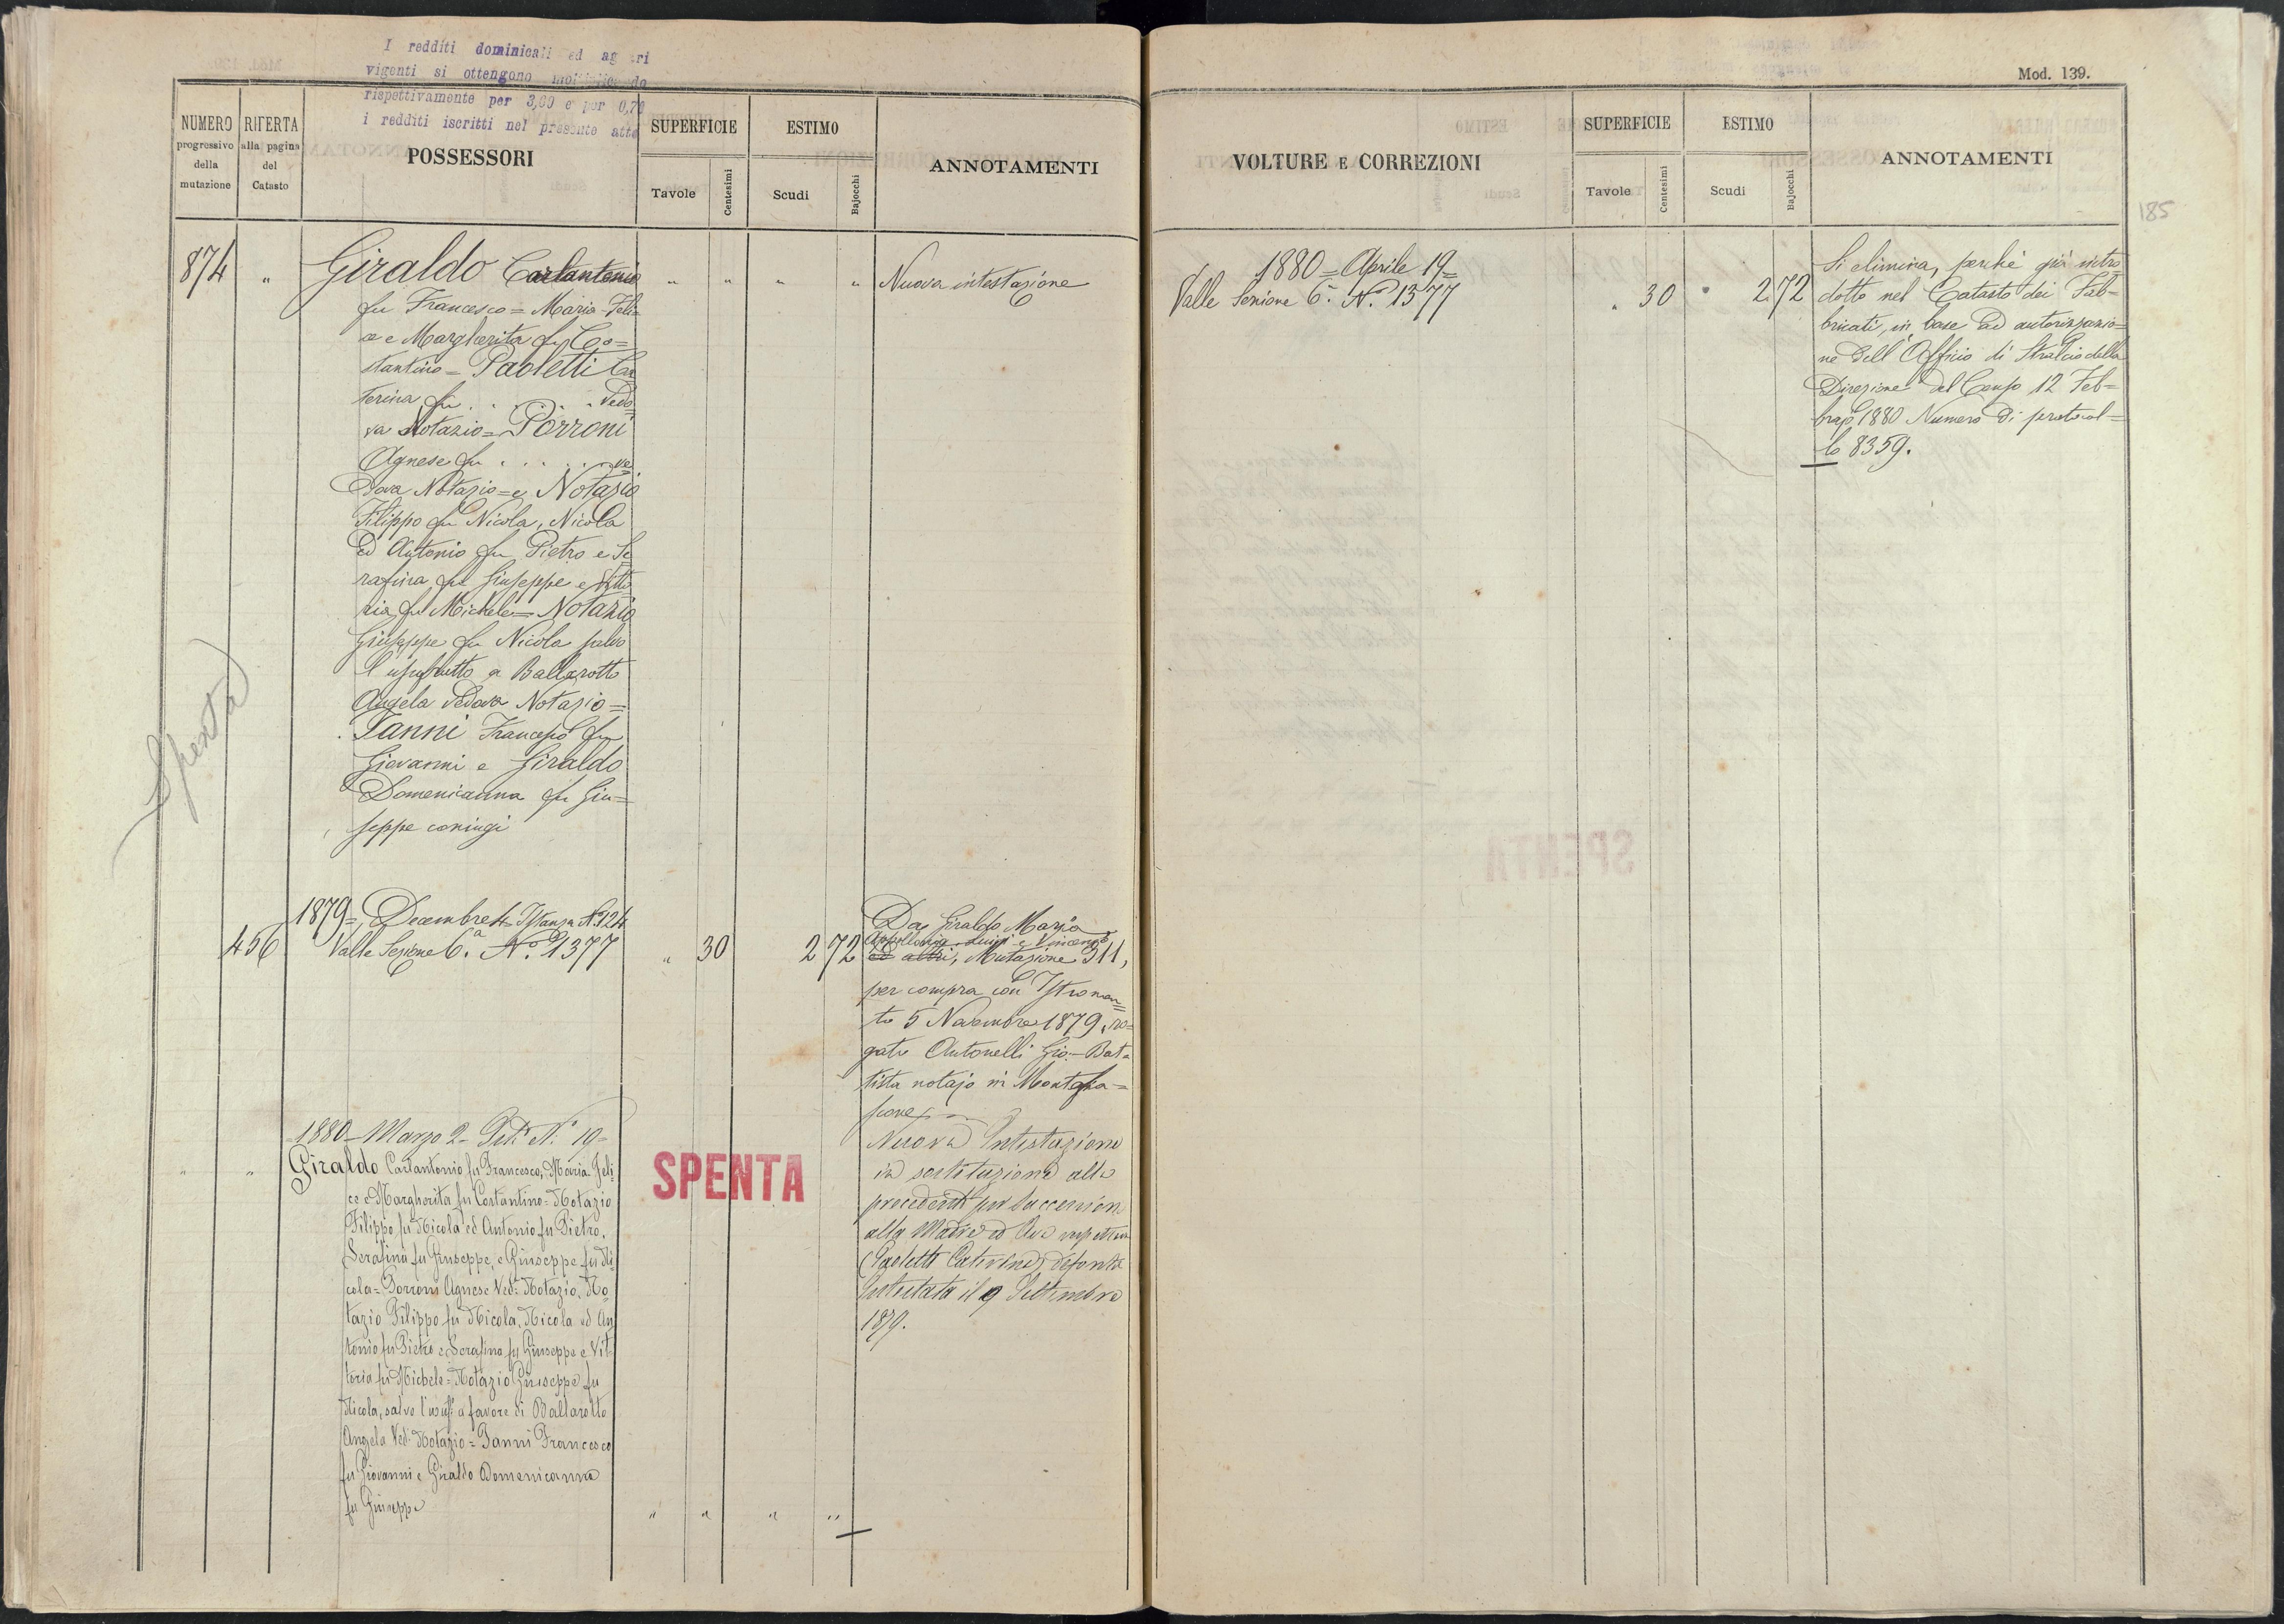 I redditi dominicali ed agrari
vigenti si ottengono moltiplicando
rispettivamente per 3,60 e per 0,70
i redditi iscritti nel presente atto
NUMERO
progressivo
della
mutazione
RIFERTA
alla pagina
del
Catasto
POSSESSORI
SUPERFICIE
Tavole
Centesimi
ESTIMO
Scudi
Bajocchi
ANNOTAMENTI
874 " Giraldo Carlantonio " " " " Nuova intestazione
fu Francesco = Maria Feli=
ce e Margherita fu Co=
stantino = Paoletti Ca
terina fu . . . . . Vedo=
va Notazio = Porroni
Agnese fu . . . . . ve=
dova Notazio = e Notazio
Filippo fu Nicola, Nicola
ed Antonio fu Pietro e Se
rafina fu Giuseppe e Vitto
ria fu Michele = Notazio
Giuseppe fu Nicola salvo
l'usufrutto a Ballarotto
Angela vedova Notazio =
Ianni Francesco fu
Giovanni e Giraldo
Domenicanna fu Giu=
seppe coniugi
Spenta
1879 = Decembre 4 = Istanza N° 124
456 Valle Sezione 6.a N.° 1377 " 30 2 72
Da Giraldo Maria
Appollonia Luigi e Vincenzo
ed altri, Mutazione 311,
per compra con Istromen=
to 5 Novembre 1879, ro=
gato Antonelli Gio. Bat=
tista notajo in Montefia=
scone
1880 = Marzo 2 = Pet.e N.° 19 =
" " Giraldo Carlantonio fu Francesco, Maria Feli-
ce e Margherita fu Costantino = Notazio
Filippo fu Nicola ed Antonio fu Pietro,
Serafina fu Giuseppe, e Giuseppe fu Ni
cola = Porroni Agnese Ved.a Notazio, No
tazio Filippo fu Nicola, Nicola ed An
tonio fu Pietro e Serafina fu Giuseppe e Vit-
toria fu Michele = Notazio Giuseppe fu
Nicola, salvo l'usuf.o a favore di Ballarotto
Angela Ved.a Notazio = Ianni Francesco
fu Giovanni e Giraldo Domenicanna
fu Giuseppe " " " "
SPENTA
Nuova Intestazione
in sostituzione alla
precedente per successione
alla Madre ed Ava
Paoletti Caterina, defonta
Intestata il 9 Settembre
1879.
Mod. 139.
VOLTURE E CORREZIONI
SUPERFICIE
Tavole
Centesimi
ESTIMO
Scudi
Bajocchi
ANNOTAMENTI
185
1880 = Aprile 19 =
Valle Sezione 6.a N.° 1377 " 30 2 72
Si elimina, perchè già intro
dotto nel Catasto dei Fab=
bricati, in base ad autorizzazio=
ne dell'Officio di Stralcio della
Direzione del Censo 12 Feb=
brajo 1880 Numero di protocol=
lo 8359.